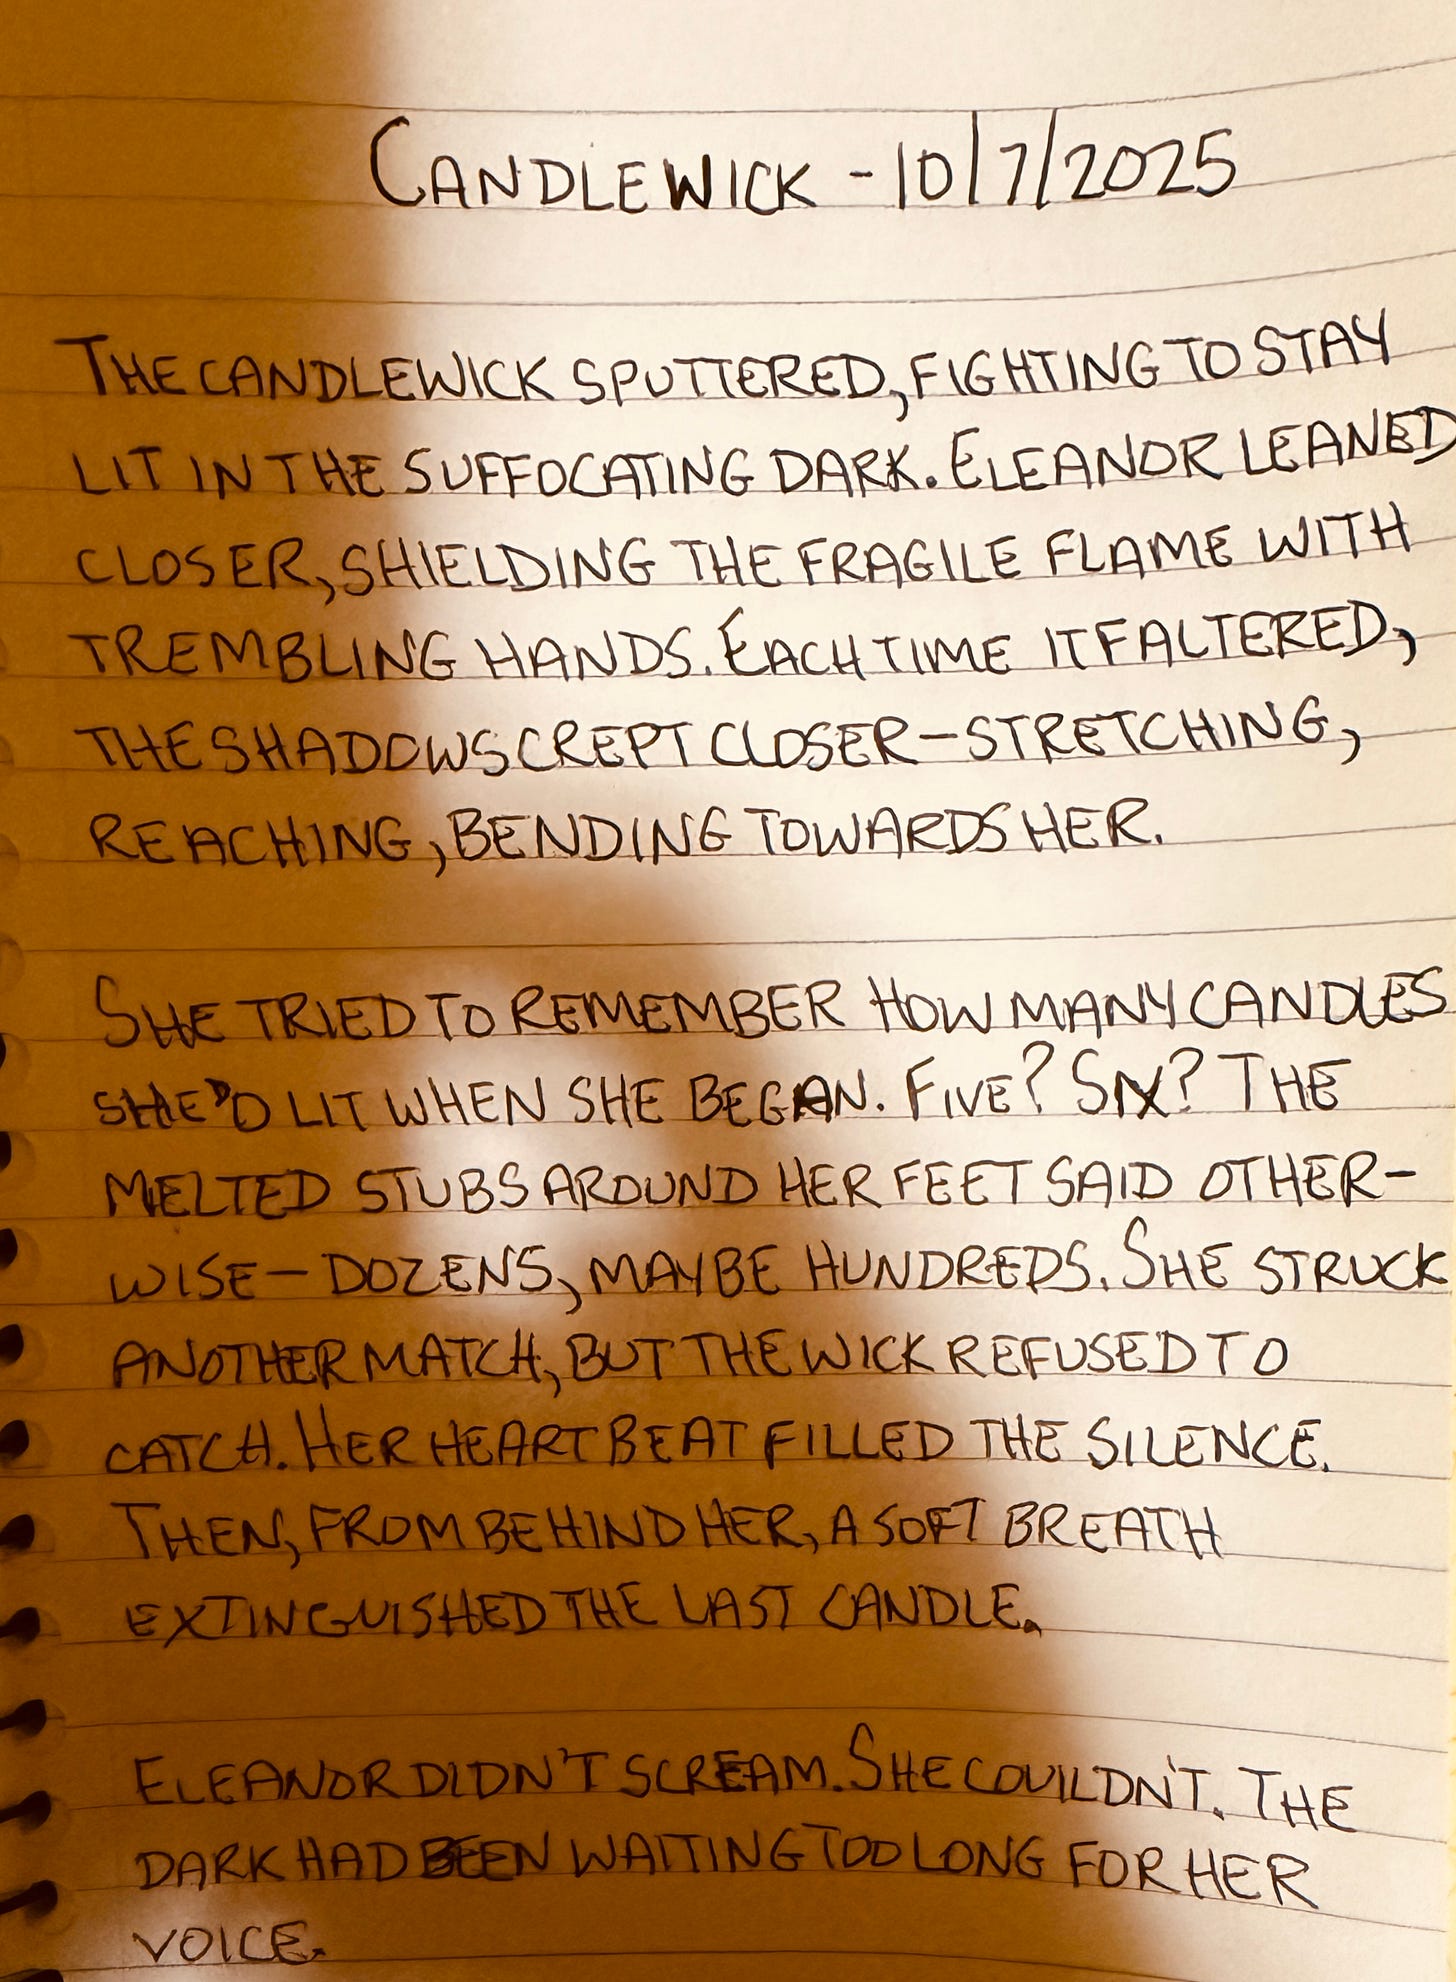 CANDLEWICK - 10/7/2025
THE CANDLEWICK SPUTTERED, FIGHTING TO STAY
LIT IN THE SUFFOCATING DARK. ELEANOR LEANED
CLOSER, SHIELDING THE FRAGILE FLAME WITH
TREMBLING HANDS. EACH TIME IT FALTERED,
THE SHADOWS CREPT CLOSER—STRETCHING,
REACHING, BENDING TOWARDS HER.
SHE TRIED TO REMEMBER HOW MANY CANDLES
SHE'D LIT WHEN SHE BEGAN. FIVE? SIX? THE
MELTED STUBS AROUND HER FEET SAID OTHER-
WISE—DOZENS, MAYBE HUNDREDS. SHE STRUCK
ANOTHER MATCH, BUT THE WICK REFUSED TO
CATCH. HER HEARTBEAT FILLED THE SILENCE.
THEN, FROM BEHIND HER, A SOFT BREATH
EXTINGUISHED THE LAST CANDLE.
ELEANOR DIDN'T SCREAM. SHE COULDN'T. THE
DARK HAD BEEN WAITING TOO LONG FOR HER
VOICE.